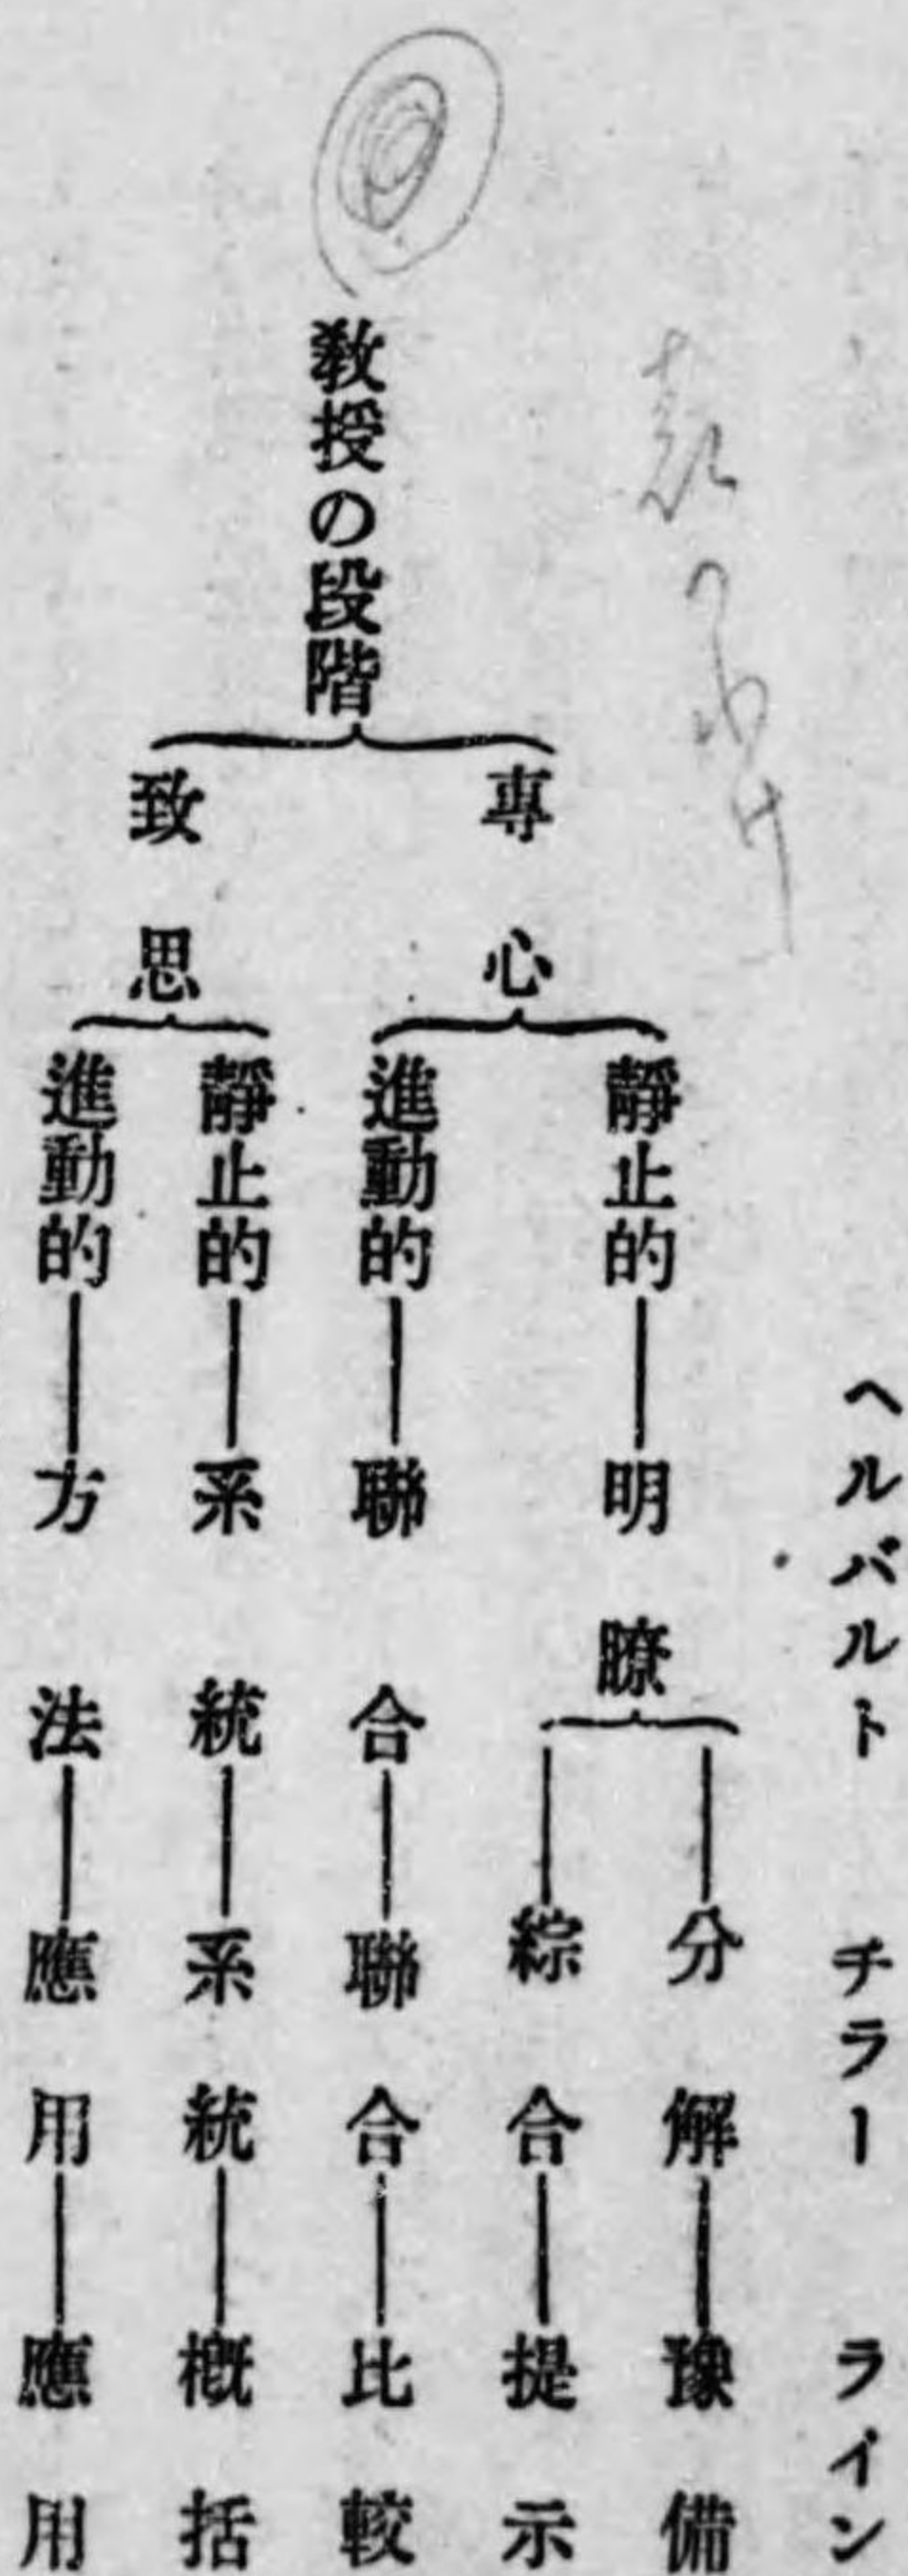 ヘルバルト　チラー　ライン
教授の段階
專心
靜止的―明瞭
分解―豫備
綜合―提示
進動的―聯合―聯合―比較
致思
靜止的―系統―系統―概括
進動的―方法―應用―應用